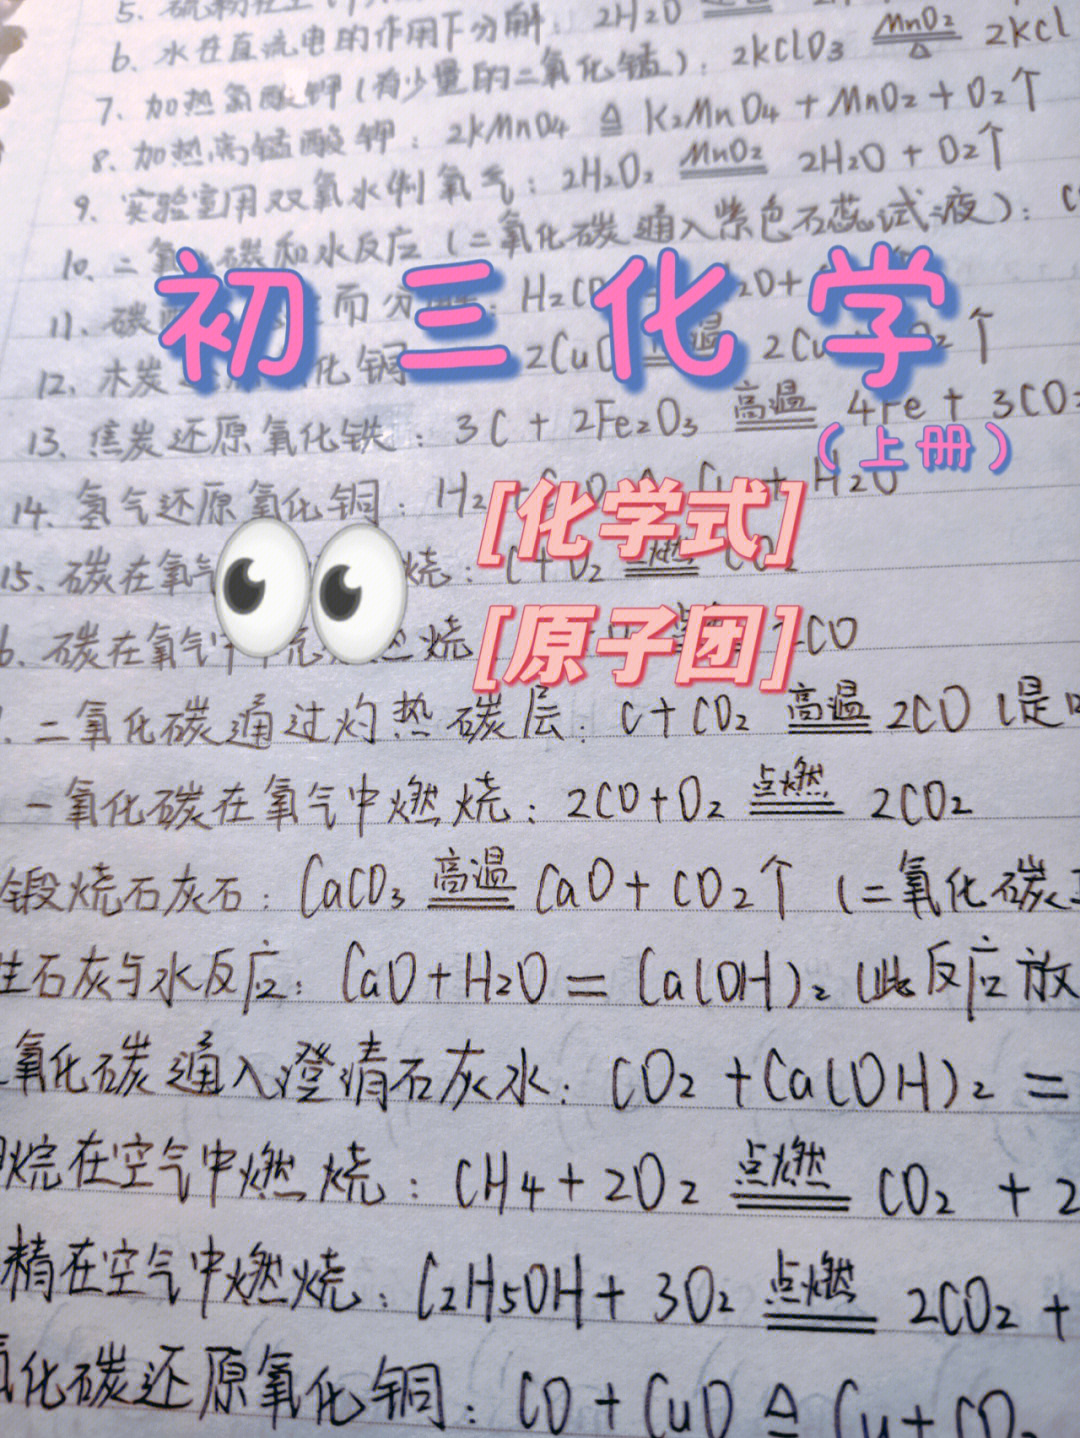 5. 硫粉在空
6. 水在直流电的作用下分解: 2H2O
7. 加热氯酸钾(有少量的二氧化锰): 2KClO3 MnO2 △ 2KCl
8. 加热高锰酸钾: 2KMnO4 △ K2MnO4 + MnO2 + O2↑
9. 实验室用双氧水制氧气: 2H2O2 MnO2 2H2O + O2↑
10. 二氧化碳和水反应(二氧化碳通入紫色石蕊试液): C
11. 碳 而分 : H2CO
12. 木炭 化铜 2CuO 2Cu ↑
初三化学
13. 焦炭还原氧化铁: 3C + 2Fe2O3 高温 4Fe + 3CO2
(上册)
14. 氢气还原氧化铜: H2 + CuO △ Cu + H2O
[化学式]
15. 碳在氧气 烧: C + O2 点燃 CO2
[原子团]
6. 碳在氧气中 烧 2CO
. 二氧化碳通过灼热碳层: C + CO2 高温 2CO (是
一氧化碳在氧气中燃烧: 2CO + O2 点燃 2CO2
锻烧石灰石: CaCO3 高温 CaO + CO2↑ (二氧化碳
生石灰与水反应: CaO + H2O = Ca(OH)2 (此反应放
氧化碳通入澄清石灰水: CO2 + Ca(OH)2 =
烷在空气中燃烧: CH4 + 2O2 点燃 CO2 + 2
精在空气中燃烧: C2H5OH + 3O2 点燃 2CO2 +
氧化碳还原氧化铜: CO + CuO △ Cu + CO2